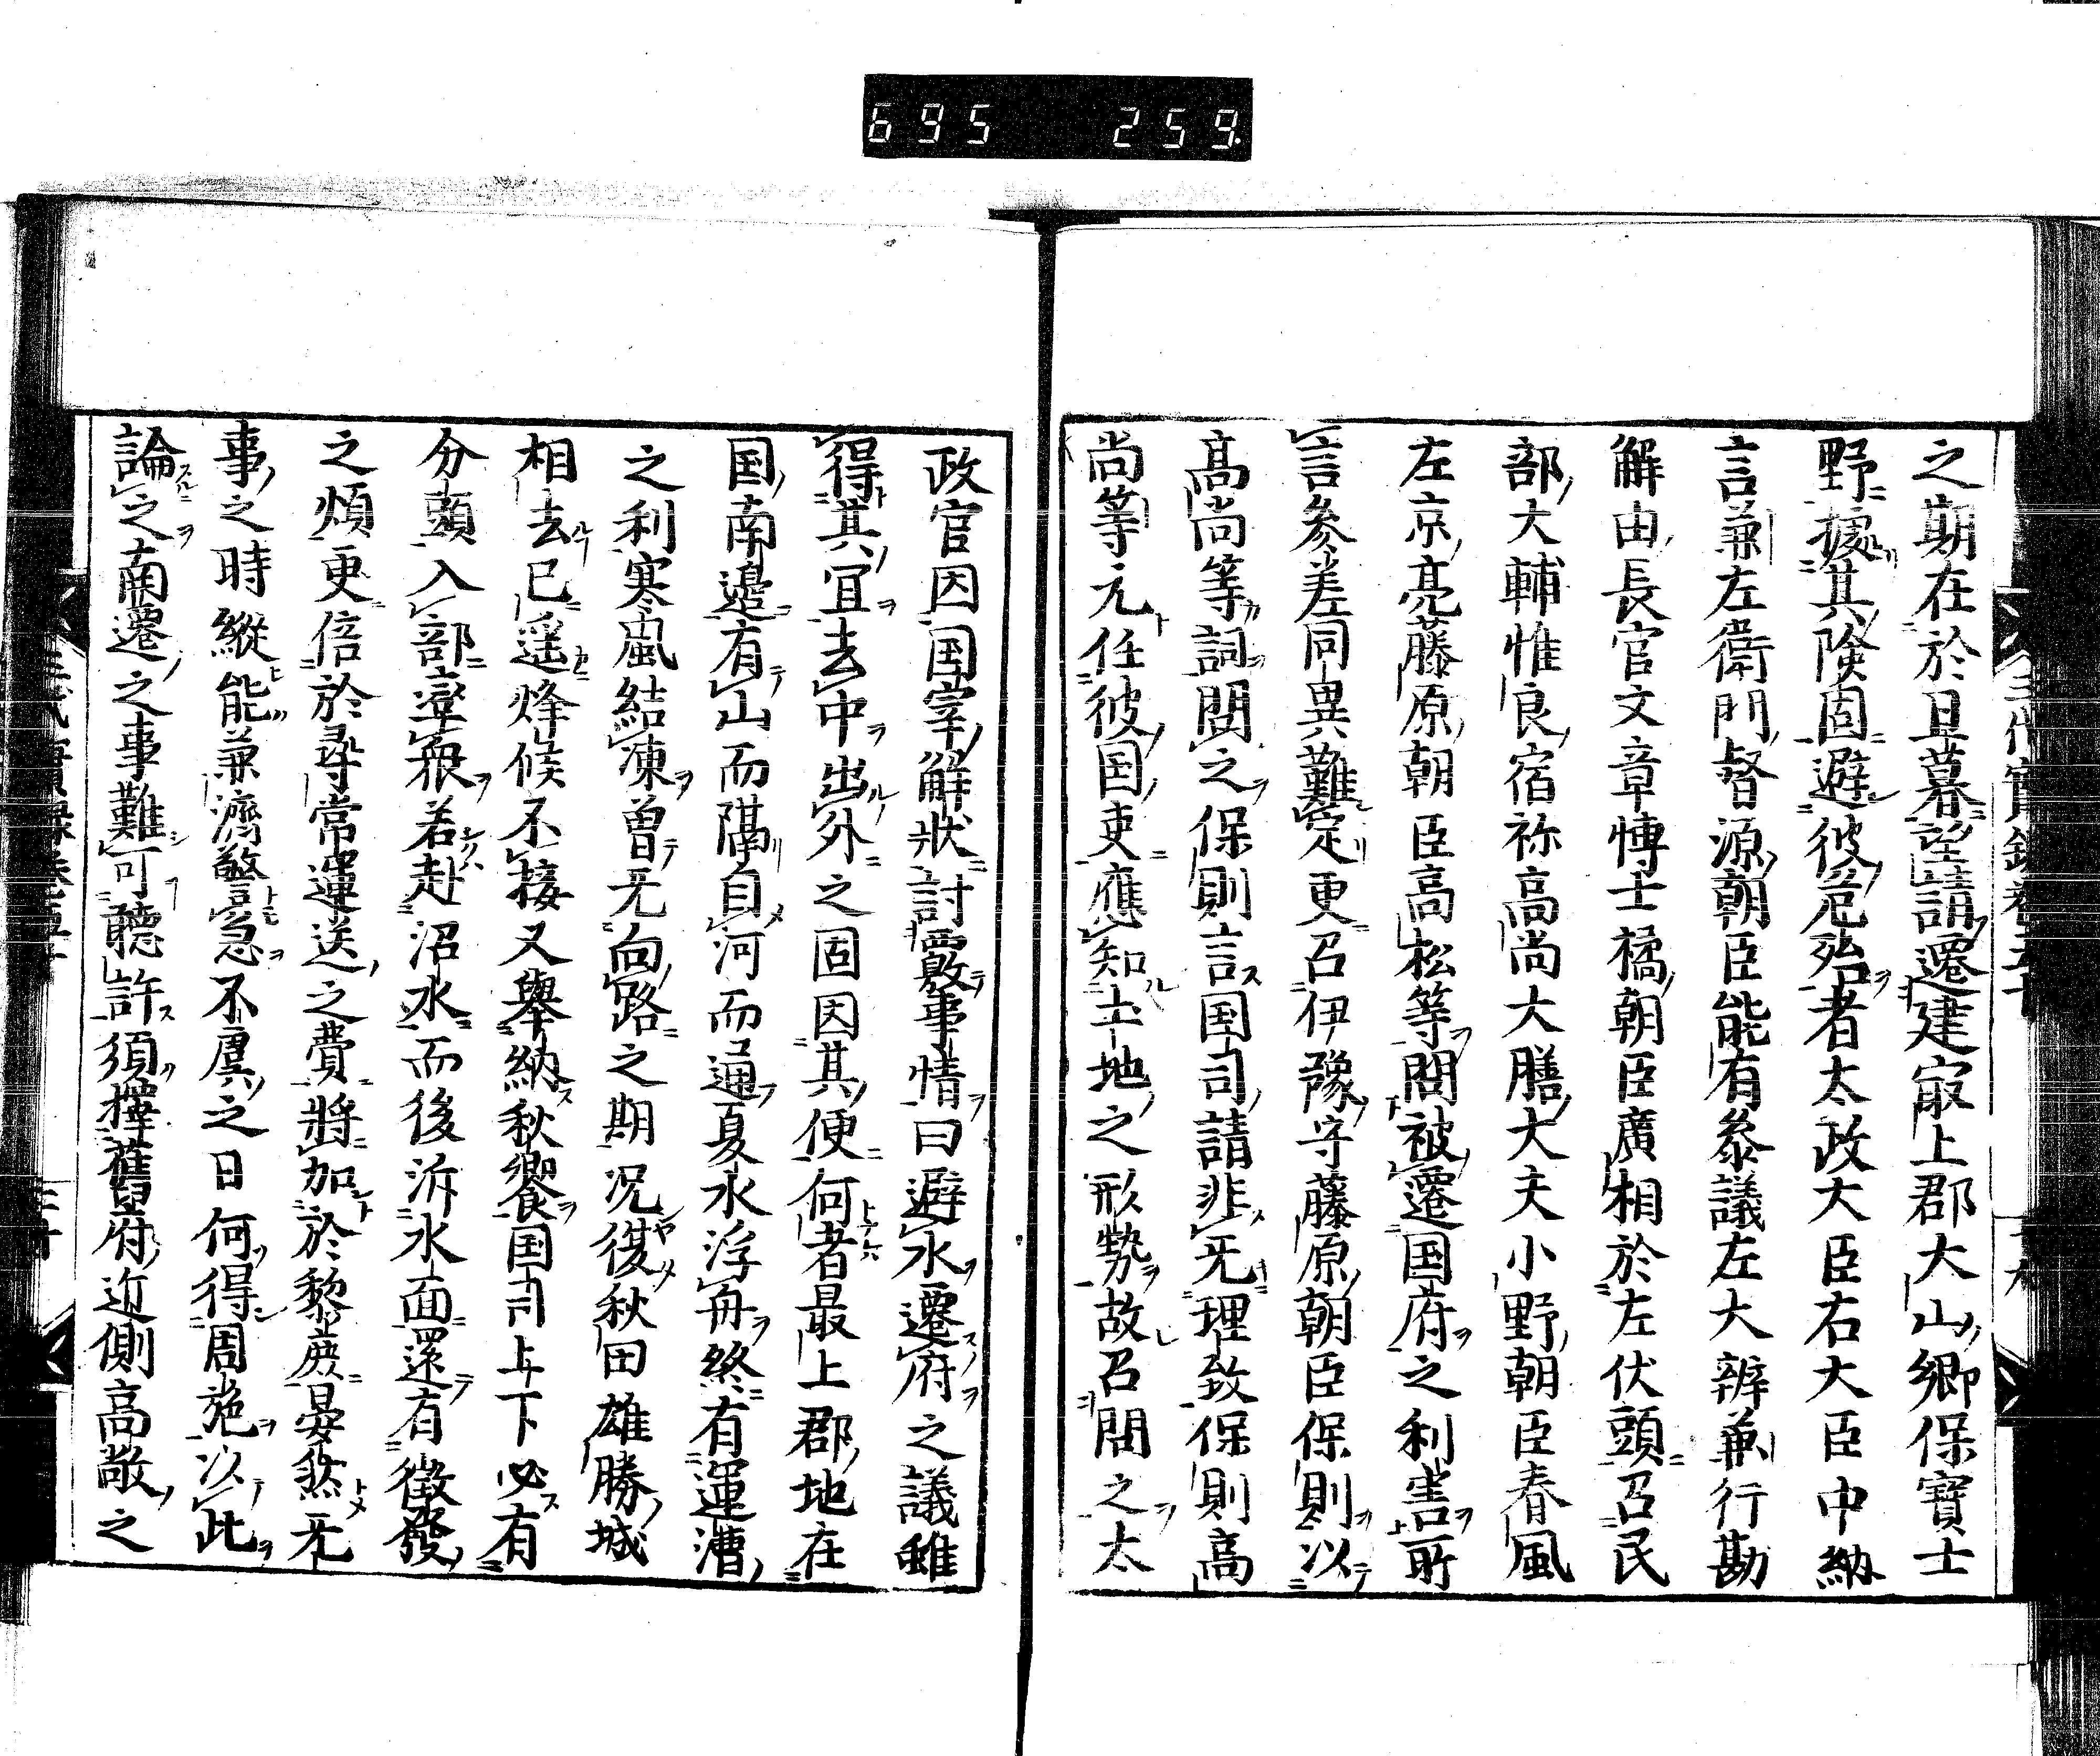 695 259
之期在於旦暮望請遷建㝡上郡大山郷保寶士
野據其険固避彼危殆者太政大臣右大臣中納
言兼左衛門督源朝臣能有參議左大辨兼行勘
解由長官文章博士橘朝臣廣相於左伏頭召民
部大輔惟良宿祢高尚大膳大夫小野朝臣春風
左京亮藤原朝臣高松等問被遷国府之利害所
言參差同異難定更召伊豫守藤原朝臣保則以
髙尚等詞問之保則言国司請非无理致保則高
尚等元任彼国吏應知土地之形勢故召問之太
政官因国宰解状討覈事情曰避水遷府之議雖
得其宜去中出外之固因其便何者最上郡地在
国南邉有山而隔自河而通夏水浮舟纔有運漕
之利寒風結凍曽无向路之期况復秋田雄勝城
相去已遥烽候不接又舉納秋饗国司上下必有
分頭入部率衆若赴沼水而後泝水面還有徴發
之煩更倍於尋常運送之費將加於黎庶晏然无
事之時縱能兼濟警急不虞之日何得周施以此
論之南遷之事難可聽許須擇舊府近側高敞之